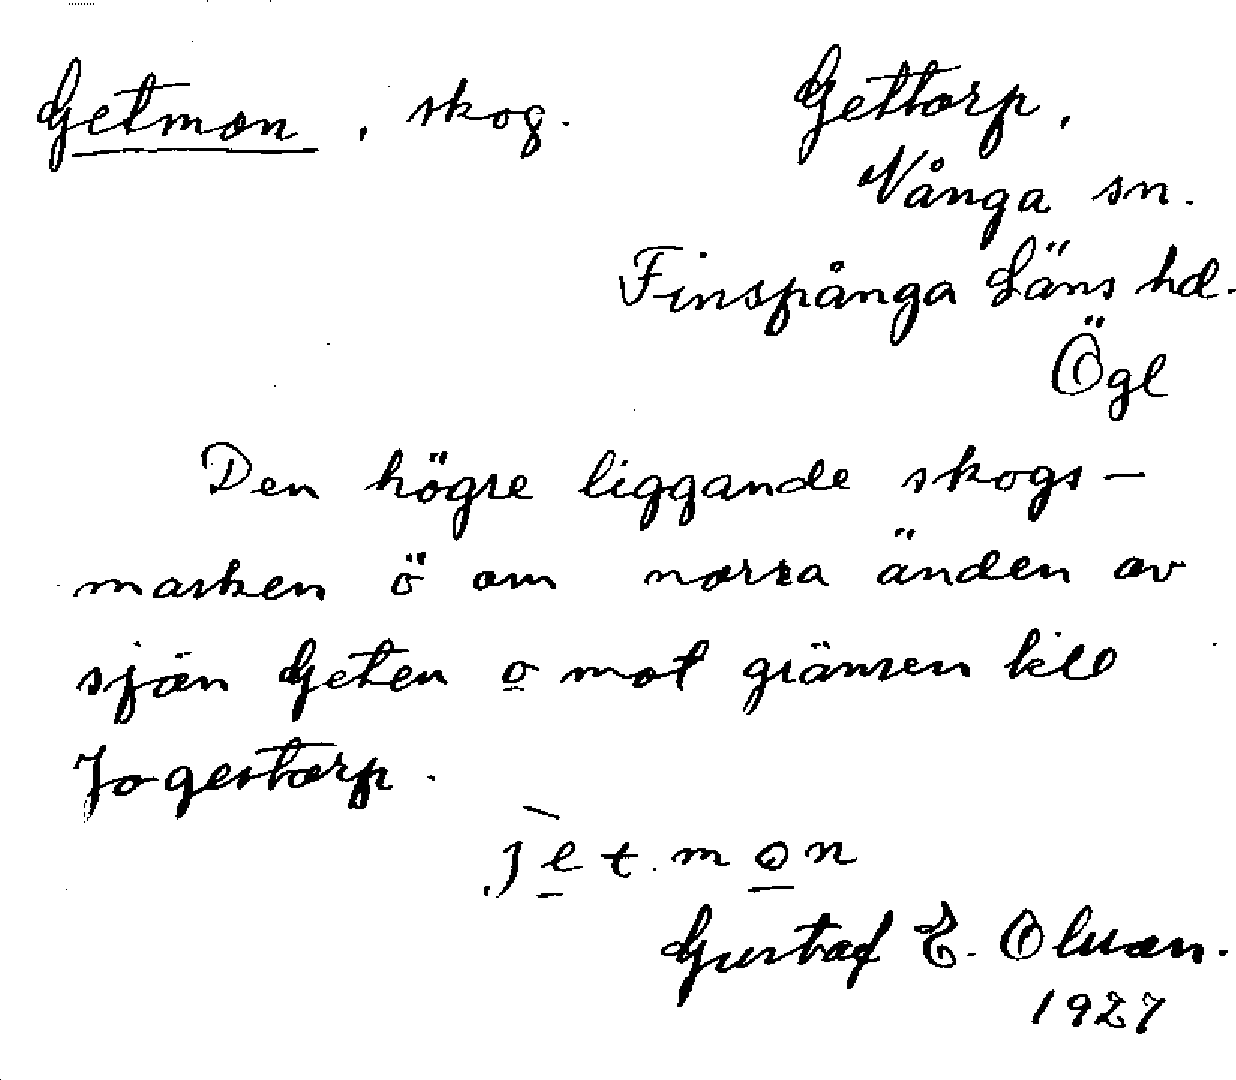 Getmon, skog.
Gettorp,
Vånga sn.
Finspånga Läns hd.
Ögl
Den högre liggande skogs-
marken ö om norra änden av
sjön Geten o mot gränsen till
Jogestorp.
jet mon
Gustaf E. Olsson.
1927